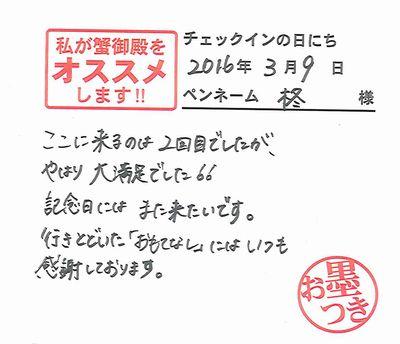 私が蟹御殿を
オススメ
します!!
チェックインの日にち
2016年 3月 9日
ペンネーム 柊 様
ここに来るのは2回目でしたが、
やはり大満足でした66
記念日にはまた来たいです。
行きとどいた「おもてなし」にはいつも
感謝しております。
お墨つき